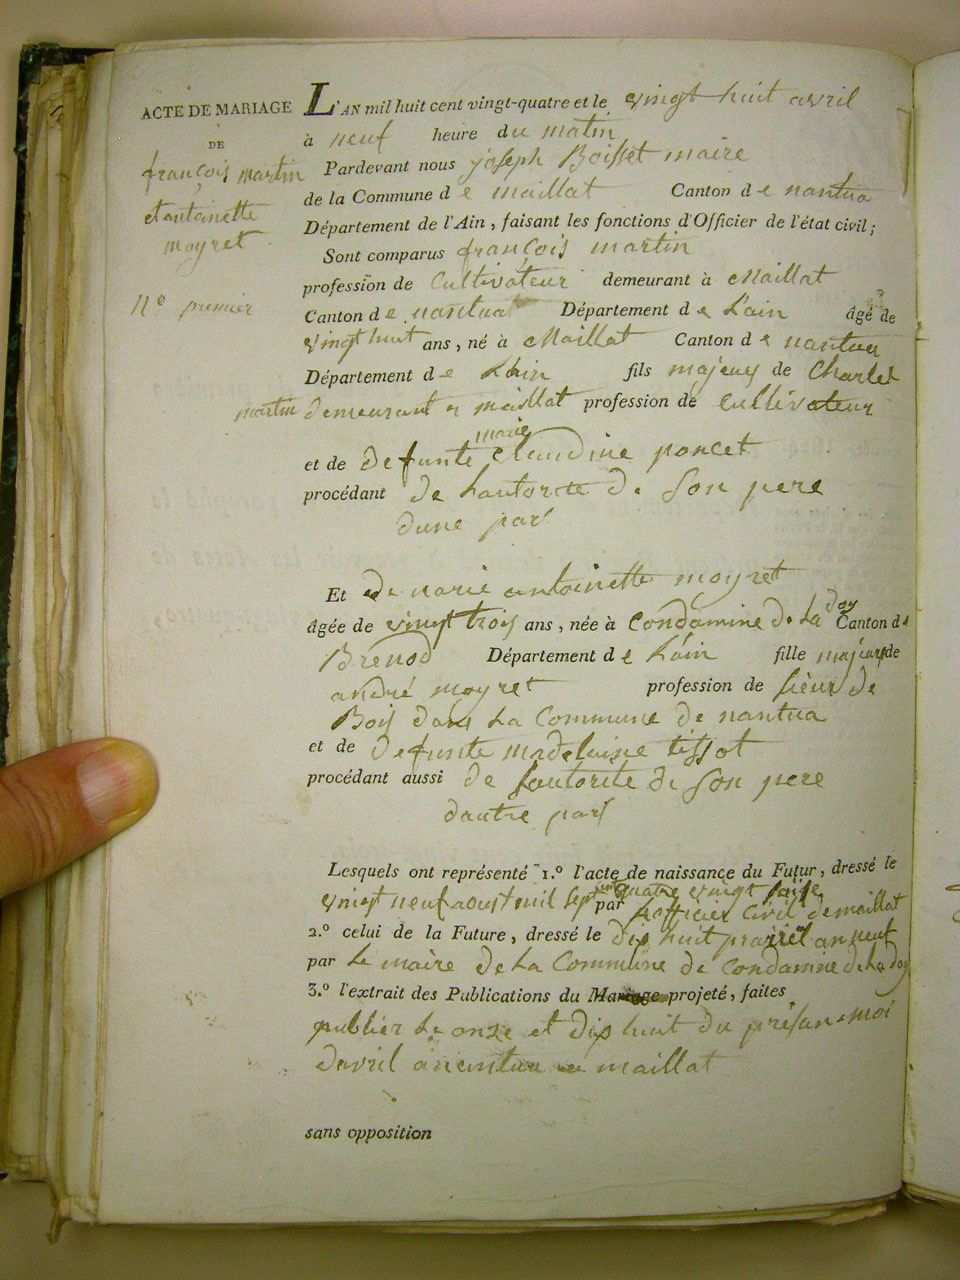 ACTE DE MARIAGE
DE
françois martin
et antoinette
moyret
N° premier
L'AN mil huit cent vingt-quatre et le vingt huit avril
à neuf heure du matin
Pardevant nous joseph Boisset maire
de la Commune de maillat Canton de nantua
Département de l'Ain, faisant les fonctions d'Officier de l'état civil;
Sont comparus françois martin
profession de Cultivateur demeurant à Maillat
Canton de nantua Département de Lain âgé de
vingt huit ans, né à Maillat Canton de nantua
Département de Lain fils majeur de Charles
martin demeurant a maillat profession de Cultivateur
marie
et de defunte Claudine poncet
procédant de Lautorite de Son pere
dune part
Et de marie antoinette moyret
doy
âgée de vingt trois ans, née à Condamine de La Canton de
Brenod Département de Lain fille majeure de
andré moyret profession de sieur de
Bois dans La Commune de nantua
et de defunte madelaine tissot
procédant aussi de Lautorite de Son pere
dautre part
Lesquels ont représenté 1.° l'acte de naissance du Futur, dressé le
vingt neuf aoust mil sept cent quatre vingt saise
par Lofficier Civil de maillat
2.° celui de la Future, dressé le dix huit prairiel an neuf
par Le maire de La Commune de Condamine de La doy
3.° l'extrait des Publications du Mariage projeté, faites
publier Le onze et dix huit du présan moi
davril a nantua maillat
sans opposition